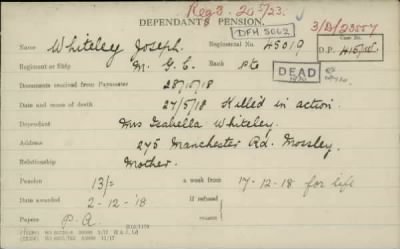 Reg3. 20 5/23.
DEPENDANTS PENSION.
DFM 5062
3/D/23557
Case No.
Name Whiteley Joseph. Regimental No. 45019 D.P.
Regiment or Ship M. G. C. Rank Pte
Documents received from Paymaster 28/10/18
DEAD
Date and cause of death 27/5/18 Killed in action.
Dependant Mrs Isabella Whiteley.
Address 275 Manchester Rd. Mossley.
Relationship Mother.
Pension 13/= a week from 17-12-18 for life
Date awarded 2-12-'18 If refused
reason
Papers P.A.